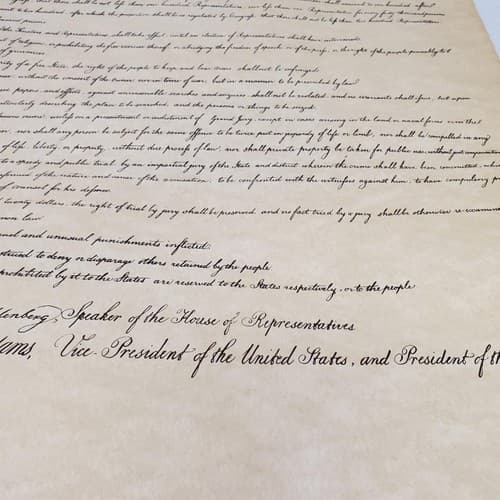 there shall be not less than one hundred Representatives, nor less than one Representative for every
and to two hundred; after which the proportion shall be so regulated by Congress, that there shall not be less than two hundred Representatives
and Representatives shall take effect, until an election of Representatives shall have intervened.
of religion, or prohibiting the free exercise thereof, or abridging the freedom of speech or of the press, or the right of the people peaceably to
of grievances
of a free State, the right of the people to keep and bear arms shall not be infringed
without the consent of the owner, nor in time of war, but in a manner to be prescribed by law
papers, and effects against unreasonable searches and seizures shall not be violated, and no warrants shall issue, but upon
describing the place to be searched, and the persons or things to be seized
unless on a presentment or indictment of Grand Jury, except in cases arising in the land or naval forces or in that
nor shall any person be subject for the same offense to be twice put in jeopardy of life or limb, nor shall be compelled in any
of life, liberty, or property, without due process of law, nor shall private property be taken for public use, without just
to a speedy and public trial, by an impartial jury of the State and district wherein the crime shall have been committed, which
of the nature and cause of the accusation, to be confronted with the witnesses against him, to have compulsory
of counsel for his defense
twenty dollars, the right of trial by jury shall be preserved, and no fact tried by a jury shall be otherwise
law
and unusual punishments inflicted.
to deny or disparage others retained by the people
prohibited by it to the States are reserved to the States respectively, or to the people
Speaker of the House of Representatives
Vice-President of the United States, and President of the